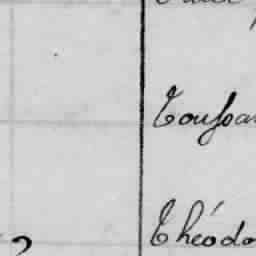 Toussa
Théodo